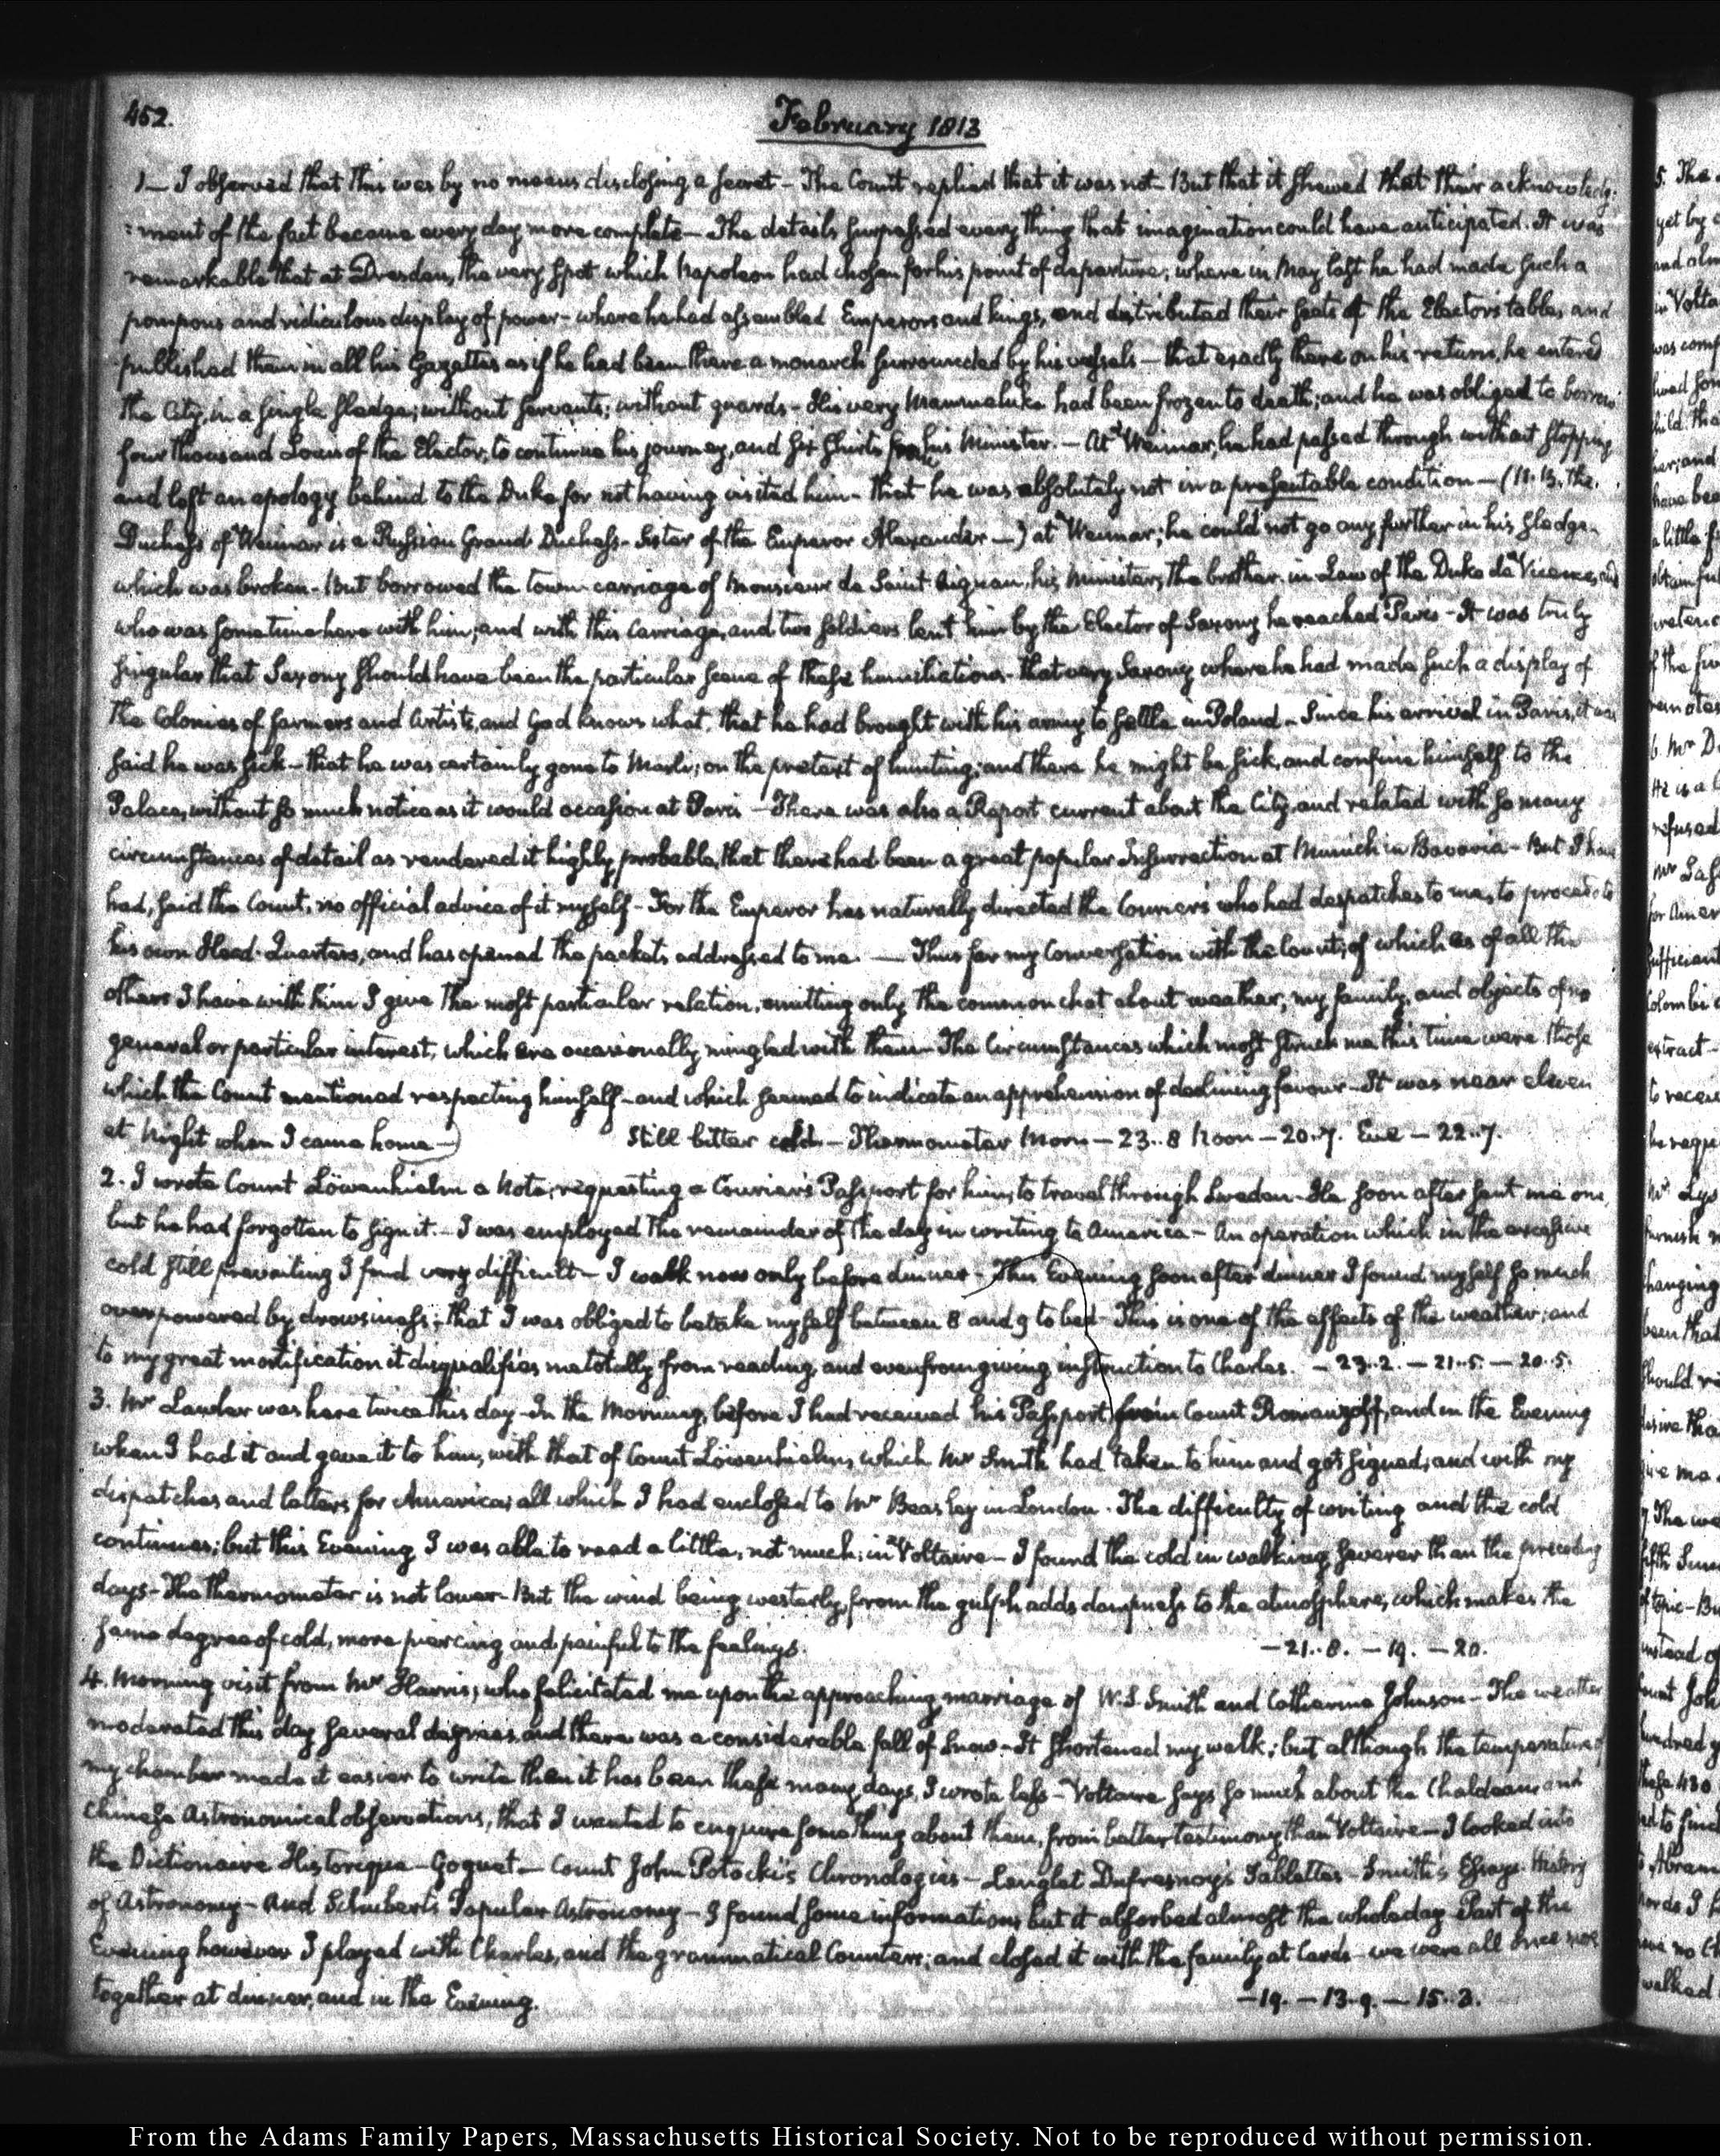 452.
February 1813
1— I observed that this was by no means disclosing a secret— The Count replied that it was not— But that it shewed that their acknowledg:
:ment of the fact became every day more complete— The details surpassed every thing that imagination could have anticipated. It was
remarkable that at Dresden, the very spot which Napoleon had chosen for his point of departure; where in May last he had made such a
pompous and ridiculous display of power— where he had assembled Emperors and kings, and distributed their seats at the Elector's tables, and
published them in all his Gazettes as if he had been there a monarch surrounded by his vassals— that exactly there on his return, he entered
the City, in a single sledge; without servants; without guards— His very Mammaluke had been frozen to death; and he was obliged to borrow
four thousand Louis of the Elector, to continue his journey, and six shirts from his Minister.— At Weimar, he had passed through without stopping
and left an apology behind to the Duke for not having visited him— that he was absolutely not in a presentable condition— (N.B. the
Duchess of Weimar is a Russian Grand Duchess— Sister of the Emperor Alexander—) at Weimar; he could not go any further in his sledge
which was broken— But borrowed the town-carriage of Monsieur de Saint Aignan, his Minister, the brother-in-Law of the Duke de Vicence, and
who was sometime here with him; and with this carriage, and two soldiers lent him by the Elector of Saxony he reached Paris— It was truly
singular that Saxony should have been the particular scene of these humiliations— that very Saxony where he had made such a display of
the Colonies of farmers and Artists, and God knows what, that he had brought with his army to settle in Poland— Since his arrival in Paris, it was
said he was sick— that he was certainly gone to Marli; on the pretext of hunting; and there he might be sick, and confine himself to the
Palace, without so much notice as it would occasion at Paris— There was also a Report current about the City, and related with so many
circumstances of detail as rendered it highly probable, that there had been a great popular Insurrection at Munich in Bavaria— But I have
had, said the Count, no official advice of it myself— For the Emperor has naturally directed the Couriers who had despatches to me, to proceed to
his own Head-Quarters, and has opened the packets addressed to me.— Thus far my Conversation with the Count; of which as of all the
others I have with him I give the most particular relation, omitting only the common chat about weather, my family, and objects of no
general or particular interest, which are occasionally mingled with them— The Circumstances which most struck me this time were those
which the Count mentioned respecting himself— and which seemed to indicate an apprehension of declining favour— It was near eleven
at Night when I came home— Still bitter cold— Thermometer Morn— 23..8 Noon— 20.7. Eve— 22..7.
2. I wrote Count Löwenhielm a Note, requesting a Courier's Passport for him, to travel through Sweden— He soon after sent me one,
but he had forgotten to sign it.— I was employed the remainder of the day in writing to America— An operation which in the excessive
cold still prevailing I find very difficult— I walk now only before dinner— This Evening soon after dinner I found myself so much
overpowered by drowsiness; that I was obliged to betake myself between 8 and 9 to bed— This is one of the effects of the weather; and
to my great mortification it disqualifies me totally from reading, and even from giving instruction to Charles. —23..2. —21..5. —20.5.
3. Mr Lawler was here twice this day— In the Morning, before I had received his Passport from Count Romanzoff, and in the Evening
when I had it and gave it to him, with that of Count Löwenhielm, which Mr Smith had taken to him and got signed; and with my
dispatches and letters for America; all which I had enclosed to Mr Beasley in London. The difficulty of writing and the cold
continues; but this Evening I was able to read a little, not much; in Voltaire— I found the cold in walking severer than the preceding
days— The thermometer is not lower— But the wind being westerly, from the gulph adds dampness to the atmosphere, which makes the
same degree of cold, more piercing and painful to the feelings. —21..8. —19. —20.
4. Morning visit from Mr Harris; who felicitated me upon the approaching marriage of W. S. Smith and Catherine Johnson— The weather
moderated this day several degrees, and there was a considerable fall of Snow— It shortened my walk; but although the temperature of
my chamber made it easier to write than it has been these many days, I wrote less— Voltaire says so much about the Chaldean and
Chinese Astronomical observations, that I wanted to enquire something about them, from better testimony than Voltaire— I looked into
the Dictionaire Historique— Goguet— Count John Potocki's Chronologies— Lenglet Dufresnoy's Tablettes— Smith's Essays— History
of Astronomy— and Schubert's Popular Astronomy— I found some information; but it absorbed almost the whole day— Part of the
Evening however I played with Charles, and the grammatical Counters; and closed it with the family at Cards— we were all once more
together at dinner, and in the Evening. —19. —13.9. —15..3.
From the Adams Family Papers, Massachusetts Historical Society. Not to be reproduced without permission.